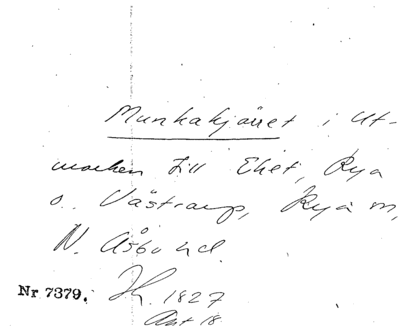 Munkakjärret i ut-
marken till Eket, Rya
o. Västraup, Rya sn,
N. Åsbo hd.
Nr 7379. Jh. 1827
Akt 18